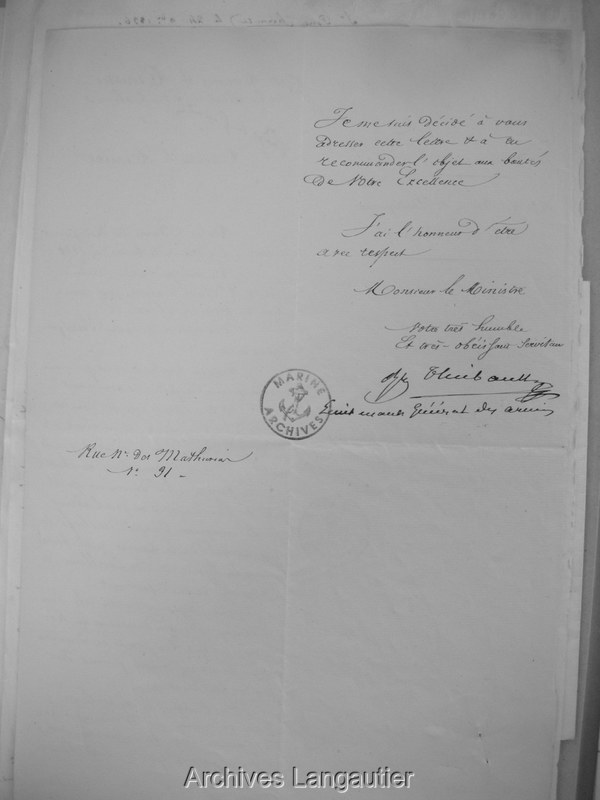 Je me suis Décidé à vous
adresser cette lettre et à en
recommander l'objet aux bontés
De Votre Excellence
J'ai l'honneur d'être
avec respect
Monsieur le Ministre
Votre très humble
Et très-obéissant Serviteur
Thiébault
Lieutenant Général des armées
MARINE
ARCHIVES
Rue Nve des Mathurins
N° 91 -
Archives Langautier